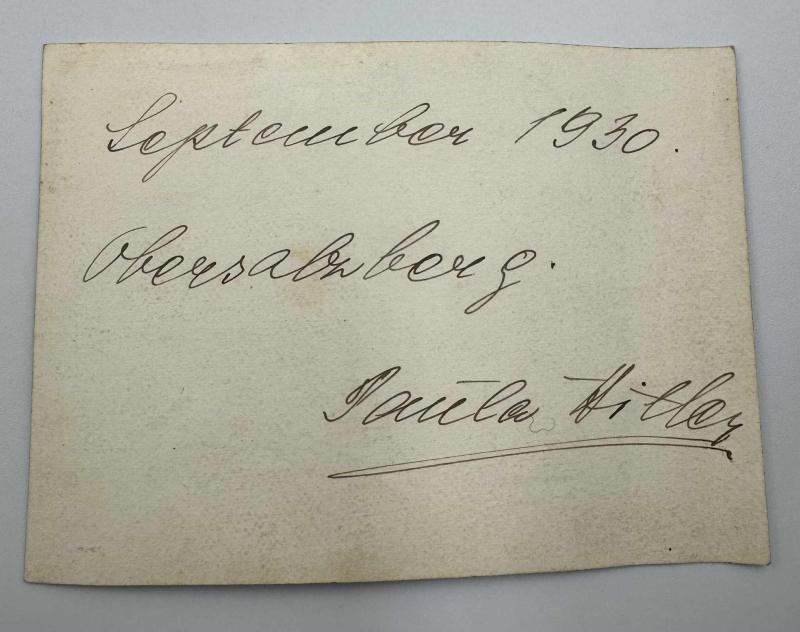 September 1930.
Obersalzberg.
Paula Hitler